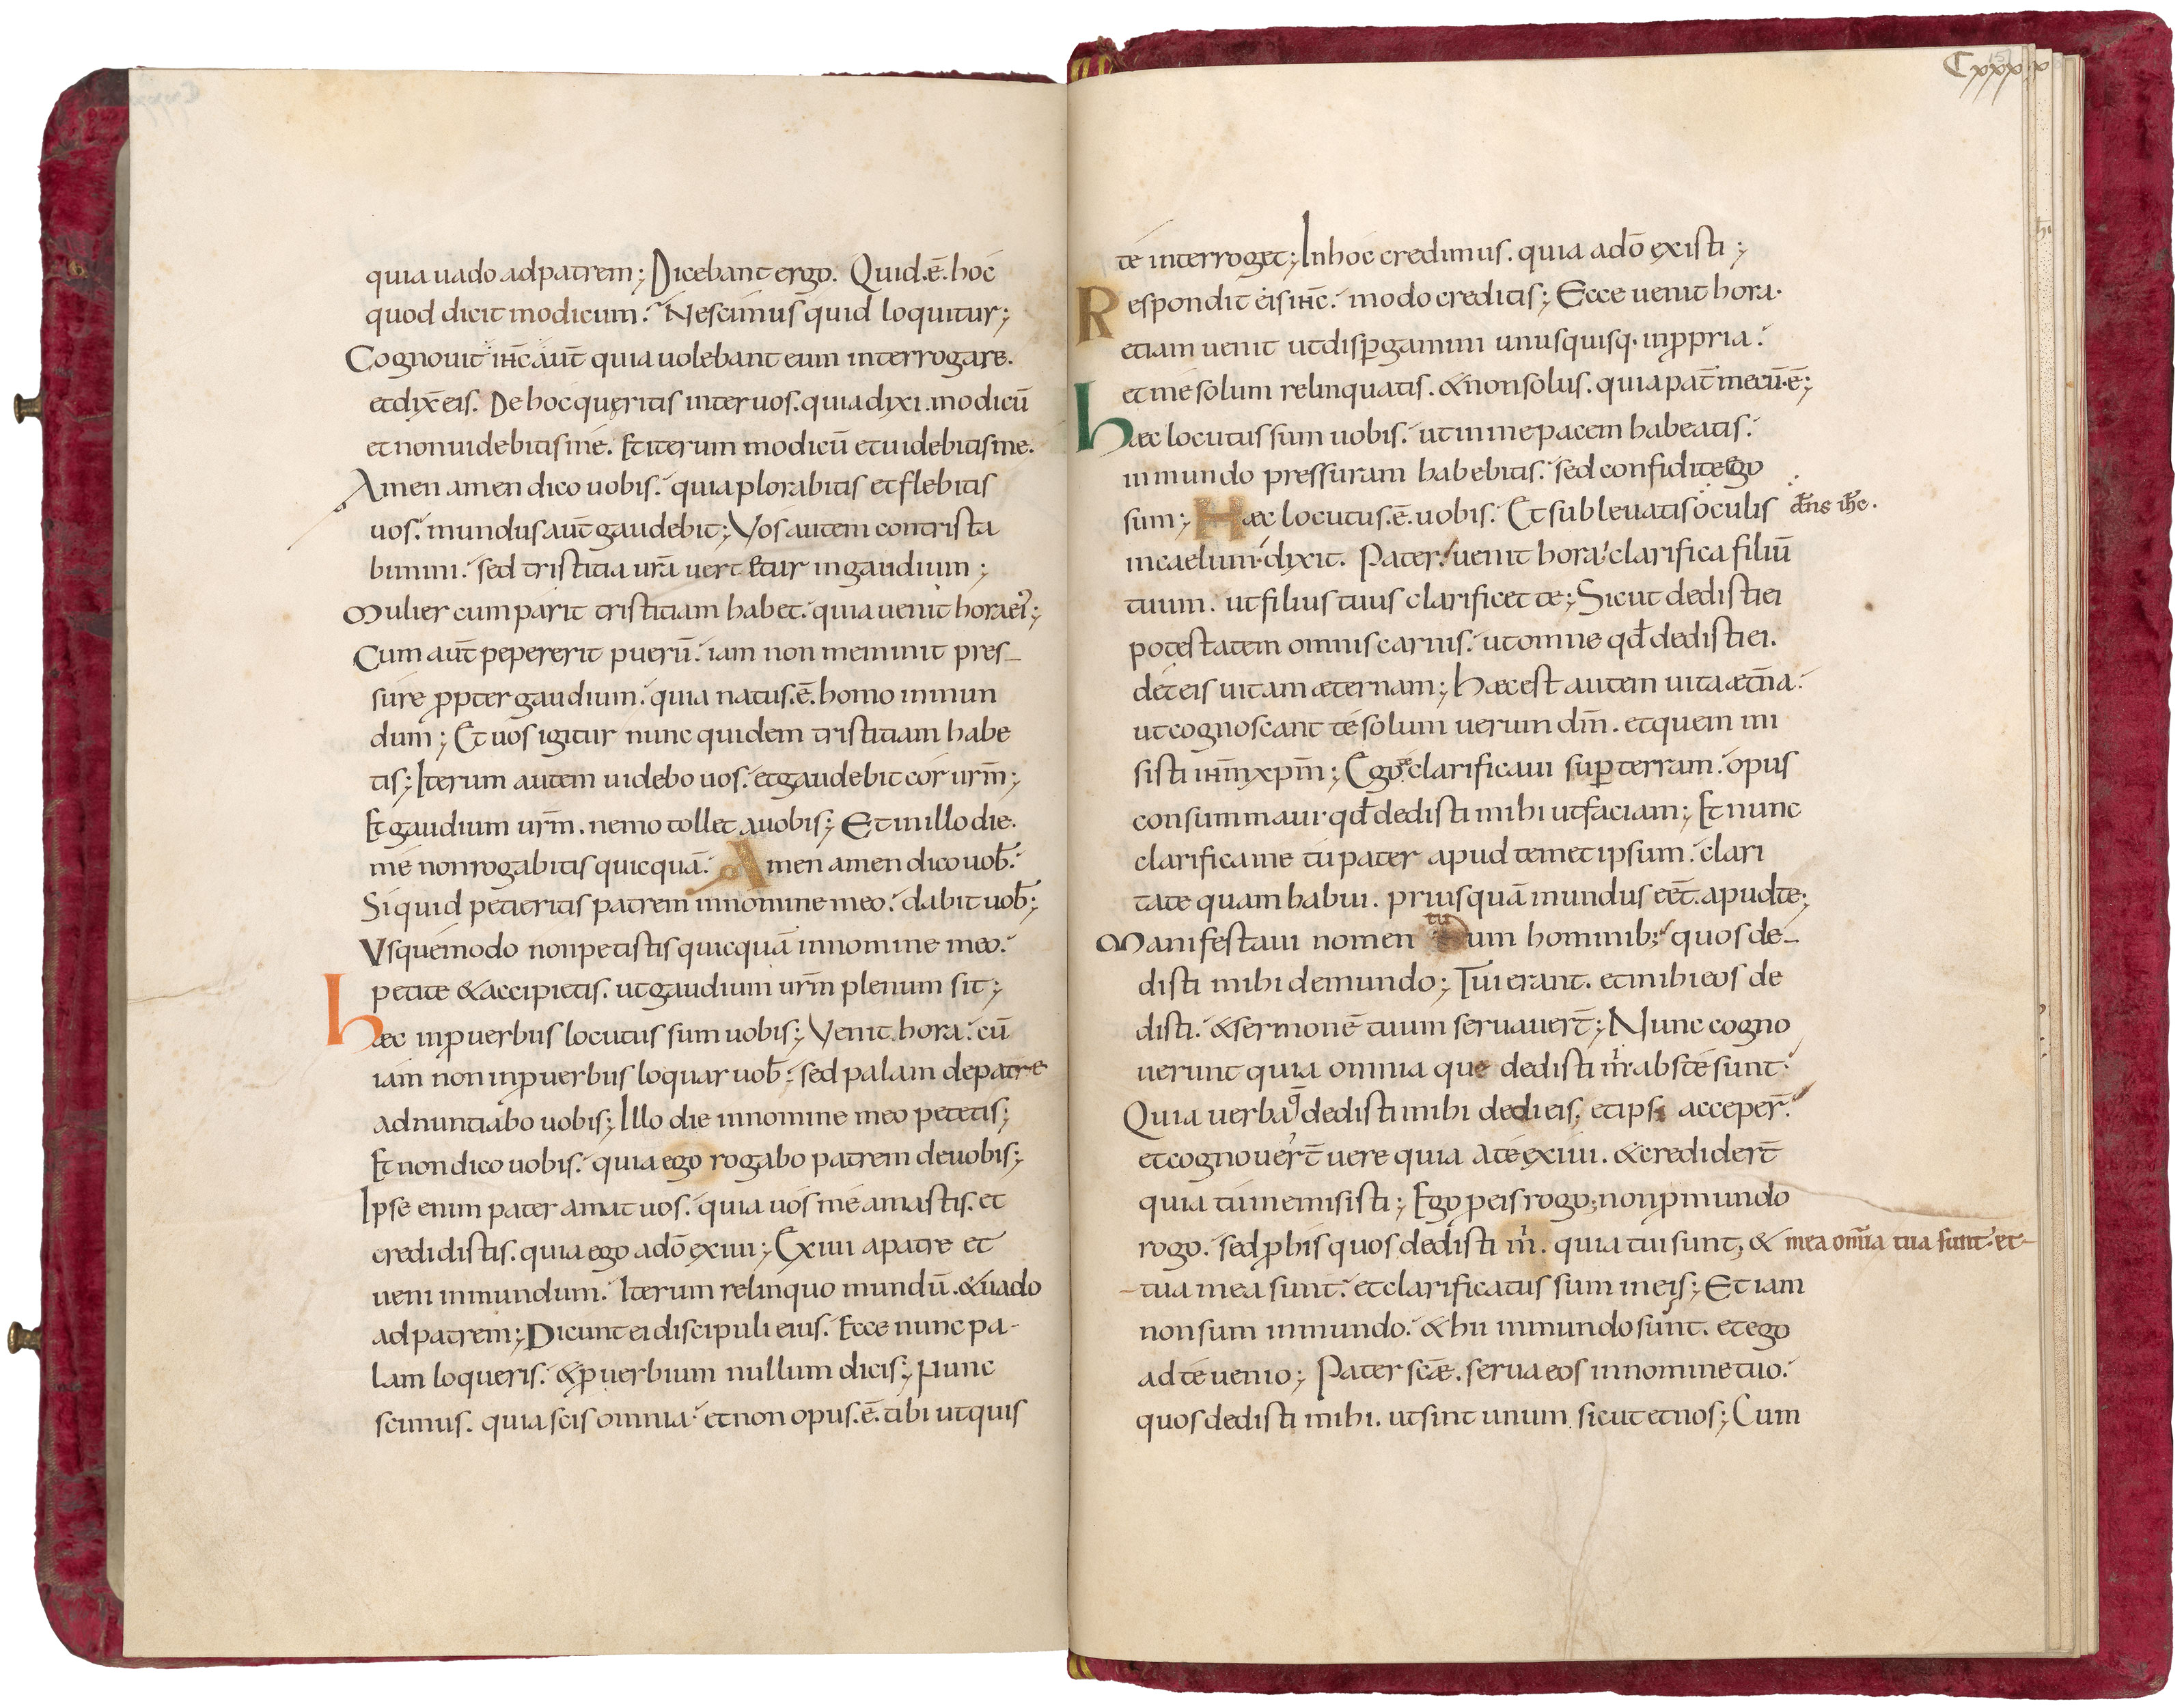 quia uado ad patrem; Dicebant ergo. Quid .ē. hoc
quod dicit modicum. Nescimus quid loquitur;
Cognouit iħc aut̄ quia uolebant eum interrogare.
et dix̄ eis. De hoc queritis inter uos. quia dyxi. modicū
et non uidebitis me. Et iterum modicū et uidebitis me.
Amen amen dico uobis. quia plorabitis et flebitis
uos. mundus aut̄ gaudebit; Vos autem contrista
bimini. sed tristitia ur̄a uertetur in gaudium;
Mulier cum parit tristitiam habet. quia uenit hora ei';
Cum aut̄ pepererit puerū. iam non meminit pres-
sure ꝓpter gaudium. quia natus .ē. homo in mun
dum; Et uos igitur nunc quidem tristitiam habe
tis; Iterum autem uidebo uos. et gaudebit cor ur̄m;
Et gaudium ur̄m. nemo tollet a uobis; Et in illo die.
me non rogabitis quicquā. Amen amen dico uob̄.
Si quid petieritis patrem in nomine meo. dabit uob̄;
Vsque modo non petistis quicquā in nomine meo.
petite & accipietis. ut gaudium ur̄m plenum sit;
hæc in ꝓuerbiis locutus sum uobis; Venit hora. cū
iam non in ꝓuerbiis loquar uob̄. sed palam de patre
adnuntiabo uobis; Illo die in nomine meo petetis;
Et non dico uobis. quia ego rogabo patrem de uobis;
Ipse enim pater amat uos. quia uos me amastis. et
credidistis. quia ego a dō exiui; Exiui a patre et
ueni in mundum. Iterum relinquo mundū. & uado
ad patrem; Dicunt ei discipuli eius. Ecce nunc pa-
lam loqueris. & ꝓuerbium nullum dicis; Nunc
scimus. quia scis omnia. et non opus .ē. tibi ut quis
Cxxxix
te interroget; In hoc credimus. quia a dō existi;
Respondit eis iħc. modo creditis; Ecce uenit hora.
etiam uenit ut disp̱gamini unusquisq. in ꝓpria.
et me solum relinquatis. & non solus. quia pat̄ mecū .ē;
hæc locutus sum uobis. ut in me pacem habeatis.
in mundo pressuram habebitis. sed confidite ego
sum; Hæc locutus .ē. uobis. Et subleuatis oculis dn̄s ih̄c.
in caelum. dyxit. Pater. uenit hora. clarifica filiū
tuum. ut filius tuus clarificet te; Sicut dedisti ei
potestatem omnis carnis. ut omne qđ dedisti ei.
det eis uitam æternam; Hæc est autem uita æt̄na.
ut cognoscant te solum uerum dm̄. et quem mi
sisti iħm xp̄m; Ego te clarificaui sup̱ terram. opus
consummaui qđ dedisti mihi ut faciam; Et nunc
clarifica me tu pater apud temet ipsum. clari
tate quam habui. priusquā mundus eēt. apud te;
Manifestaui nomen tuum hominib; quos de-
disti mihi de mundo; Tui erant. et mihi eos de
disti. & sermonē tuum seruauer̄t; Nunc cogno
uerunt quia omnia que dedisti m̄ abs te sunt.
Quia uerba q̄ dedisti mihi dedi eis. et ipsi acceper̄.
et cognouer̄t uere quia a te exiui. & credidert̄
quia tu me misisti; Ego ꝓ eis rogo; non ꝓ mundo
rogo. sed ꝓ his quos dedisti m̄. quia tui sunt, & mea om̄ia tua sunt. et-
-tua mea sunt. et clarificatus sum in eis; Et iam
non sum in mundo. & hii in mundo sunt. et ego
ad te uenio; Pater scǣ. serua eos in nomine tuo.
quos dedisti mihi. ut sint unum sicut et nos; Cum